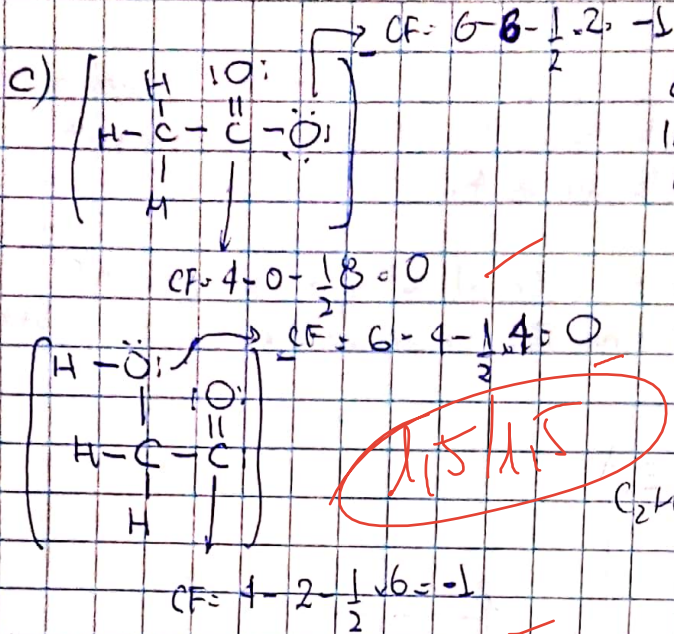 CF= 6-6-1/2.2= -1
c) [ H :O: ] -
H-C-C-O:
H
CF= 4-0-1/2 8=0
CF= 6-4-1/2.4=0
[ H-O: :O: ] -
H-C-C
H
1,5/1,5
C2H
CF= 4-2-1/2.6=-1